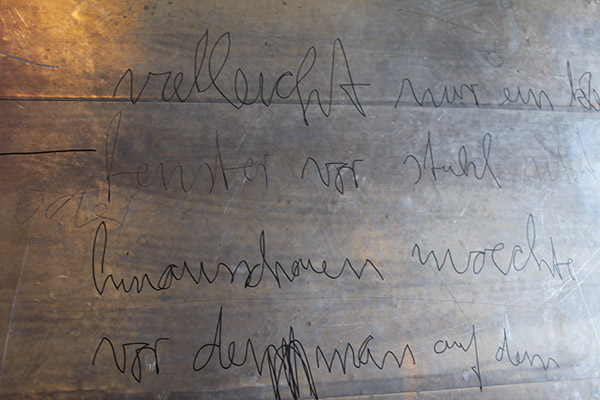 vielleicht nur ein
fenster vor stuhl
oder
hinauschauen moechte
vor dem man auf dem